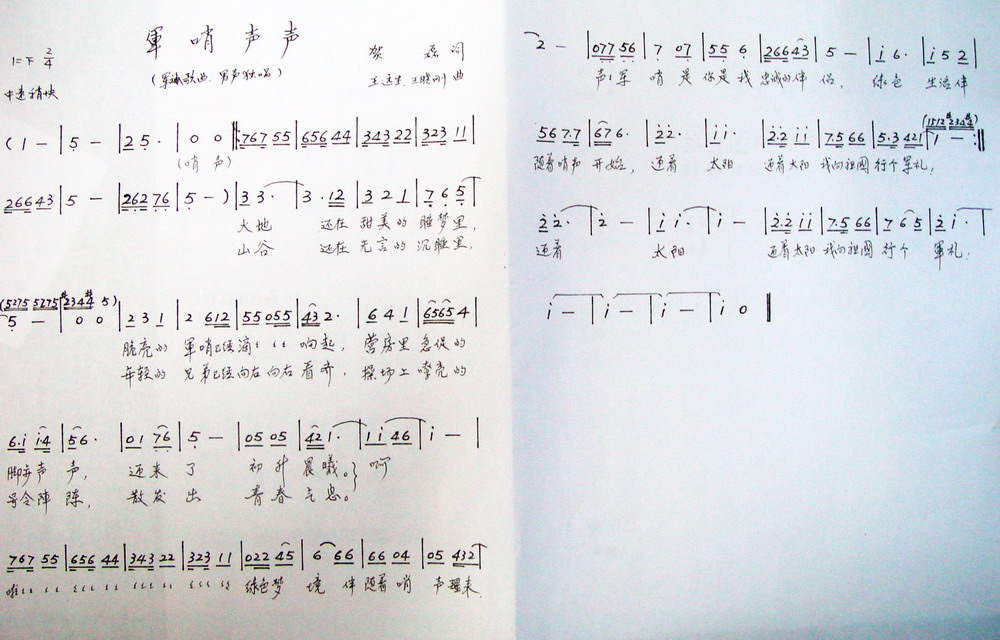 軍哨声声
1=F 2/4
贺磊 词
(军旅歌曲、男声独唱)
王远生、王晓刚 曲
中速稍快
(1 — | 5 — | 2 5 · | 0 0 ‖: 767 55 | 656 44 | 343 22 | 323 11 |
(哨声)
266 43 | 5 — | 262 76 | 5 — ) | 3 3 · | 3 · 12 | 3 2 1 | 7 6 5 |
大地 还在 甜美的 睡梦里,
山谷 还在 无言的 沉睡里,
(5275 5275 | #234#4 5)
5 — | 0 0 | 2 3 1 | 2 612 | 55 055 | 43 2 · | 6 4 1 | 6565 4 |
脆亮的 軍哨已经滴 响起, 营房里 急促的
年轻的 兄弟已经向左向右看齐, 操场上 嘹亮的
6·i i4 | 56 · | 01 76 | 5 — | 05 05 | 42 1 · | 1i 46 | i — |
脚步声 声, 迎来 了 初升 晨曦。} 啊
号令阵 阵, 散发 出 青春 气息。
767 55 | 656 44 | 343 22 | 323 11 | 022 45 | 6 66 | 66 04 | 05 432 |
绿色梦 境 伴随着 哨 声醒来
2 — | 077 56 | 7 07 | 55 6 | 266 43 | 5 — | i 6 · | i 5 2 |
声声军 哨 是 你是我 忠诚的伴 侣, 绿色 生活伴
(1512 #234#4)
56 7·7 | 67 6 · | 2 2 · | i i · | 2·2 ii | 7·5 66 | 5·3 421 | 1 — :‖
随着哨声 开始, 迎着 太阳 迎着太阳 我向祖國 行个军礼;
2 2 · | 2 — | i i · | i — | 2·2 ii | 7·5 66 | 7 6 5 | 2 i · |
迎着 太阳 迎着太阳 我向祖國 行个 軍礼;
i — | i — | i — | i 0 ‖